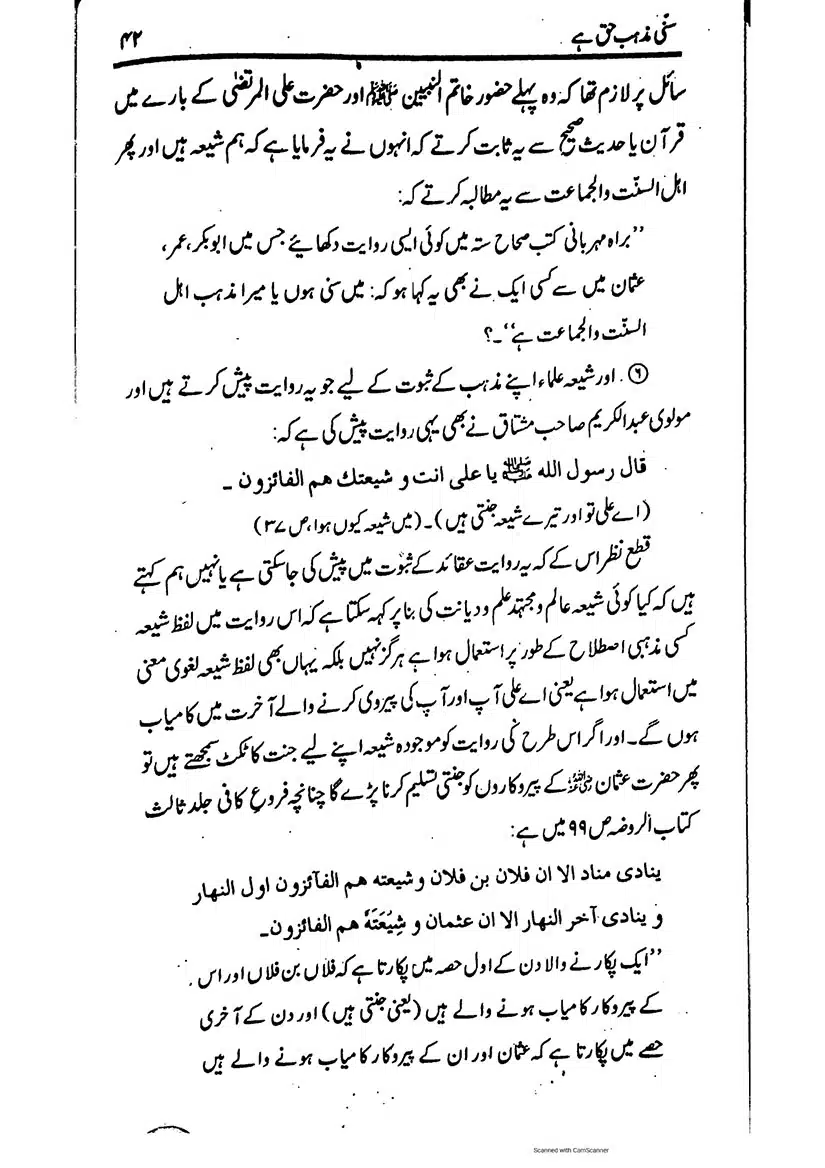 سنّی مذہب حق ہے ۴۲
سائل پر لازم تھا کہ وہ پہلے حضور خاتم النبیین ﷺ اور حضرت علی المرتضیٰ کے بارے میں
قرآن یا حدیث صحیح سے یہ ثابت کرتے کہ انہوں نے یہ فرمایا ہے کہ ہم شیعہ ہیں اور پھر
اہل السنّت والجماعت سے یہ مطالبہ کرتے کہ:
’’براہ مہربانی کتب صحاح ستہ میں کوئی ایسی روایت دکھائیے جس میں ابوبکر، عمر،
عثمان میں سے کسی ایک نے بھی یہ کہا ہو کہ: میں سنی ہوں یا میرا مذہب اہل
السنّت والجماعت ہے‘‘۔؟
⑥. اور شیعہ علماء اپنے مذہب کے ثبوت کے لیے جو یہ روایت پیش کرتے ہیں اور
مولوی عبدالکریم صاحب مشتاق نے بھی یہی روایت پیش کی ہے کہ:
قال رسول الله ﷺ يا على انت و شيعتك هم الفائزون ۔
(اے علی تو اور تیرے شیعہ جنتی ہیں)۔ (میں شیعہ کیوں ہوا، ص ۳۷)
قطع نظر اس کے کہ یہ روایت عقائد کے ثبوت میں پیش کی جا سکتی ہے یا نہیں ہم کہتے
ہیں کہ کیا کوئی شیعہ عالم و مجتہد علم و دیانت کی بنا پر کہہ سکتا ہے کہ اس روایت میں لفظ شیعہ
کسی مذہبی اصطلاح کے طور پر استعمال ہوا ہے ہرگز نہیں بلکہ یہاں بھی لفظ شیعہ لغوی معنی
میں استعمال ہوا ہے یعنی اے علی آپ اور آپ کی پیروی کرنے والے آخرت میں کامیاب
ہوں گے۔ اور اگر اس طرح کی روایت کو موجودہ شیعہ اپنے لیے جنت کا ٹکٹ سمجھتے ہیں تو
پھر حضرت عثمان رضی اللہ عنہ کے پیروکاروں کو جنتی تسلیم کرنا پڑے گا چنانچہ فروع کافی جلد ثالث
کتاب الروضہ ص ۹۹ میں ہے:
ينادى مناد الا ان فلان بن فلان و شيعته هم الفآئزون اول النهار
و ينادى آخر النهار الا ان عثمان و شِيْعَتَهٗ هم الفائزون۔
’’ایک پکارنے والا دن کے اول حصہ میں پکارتا ہے کہ فلاں بن فلاں اور اس
کے پیروکار کامیاب ہونے والے ہیں (یعنی جنتی ہیں) اور دن کے آخری
حصے میں پکارتا ہے کہ عثمان اور ان کے پیروکار کامیاب ہونے والے ہیں
Scanned with CamScanner